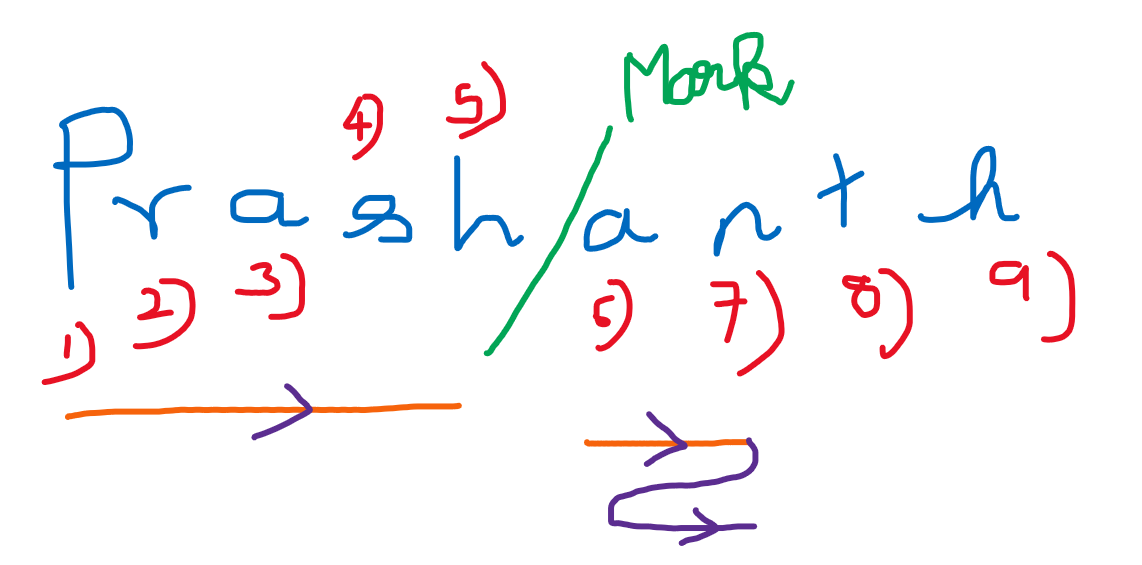 Mark
4) 5)
Prash/anth
1) 2) 3) 6) 7) 8) 9)